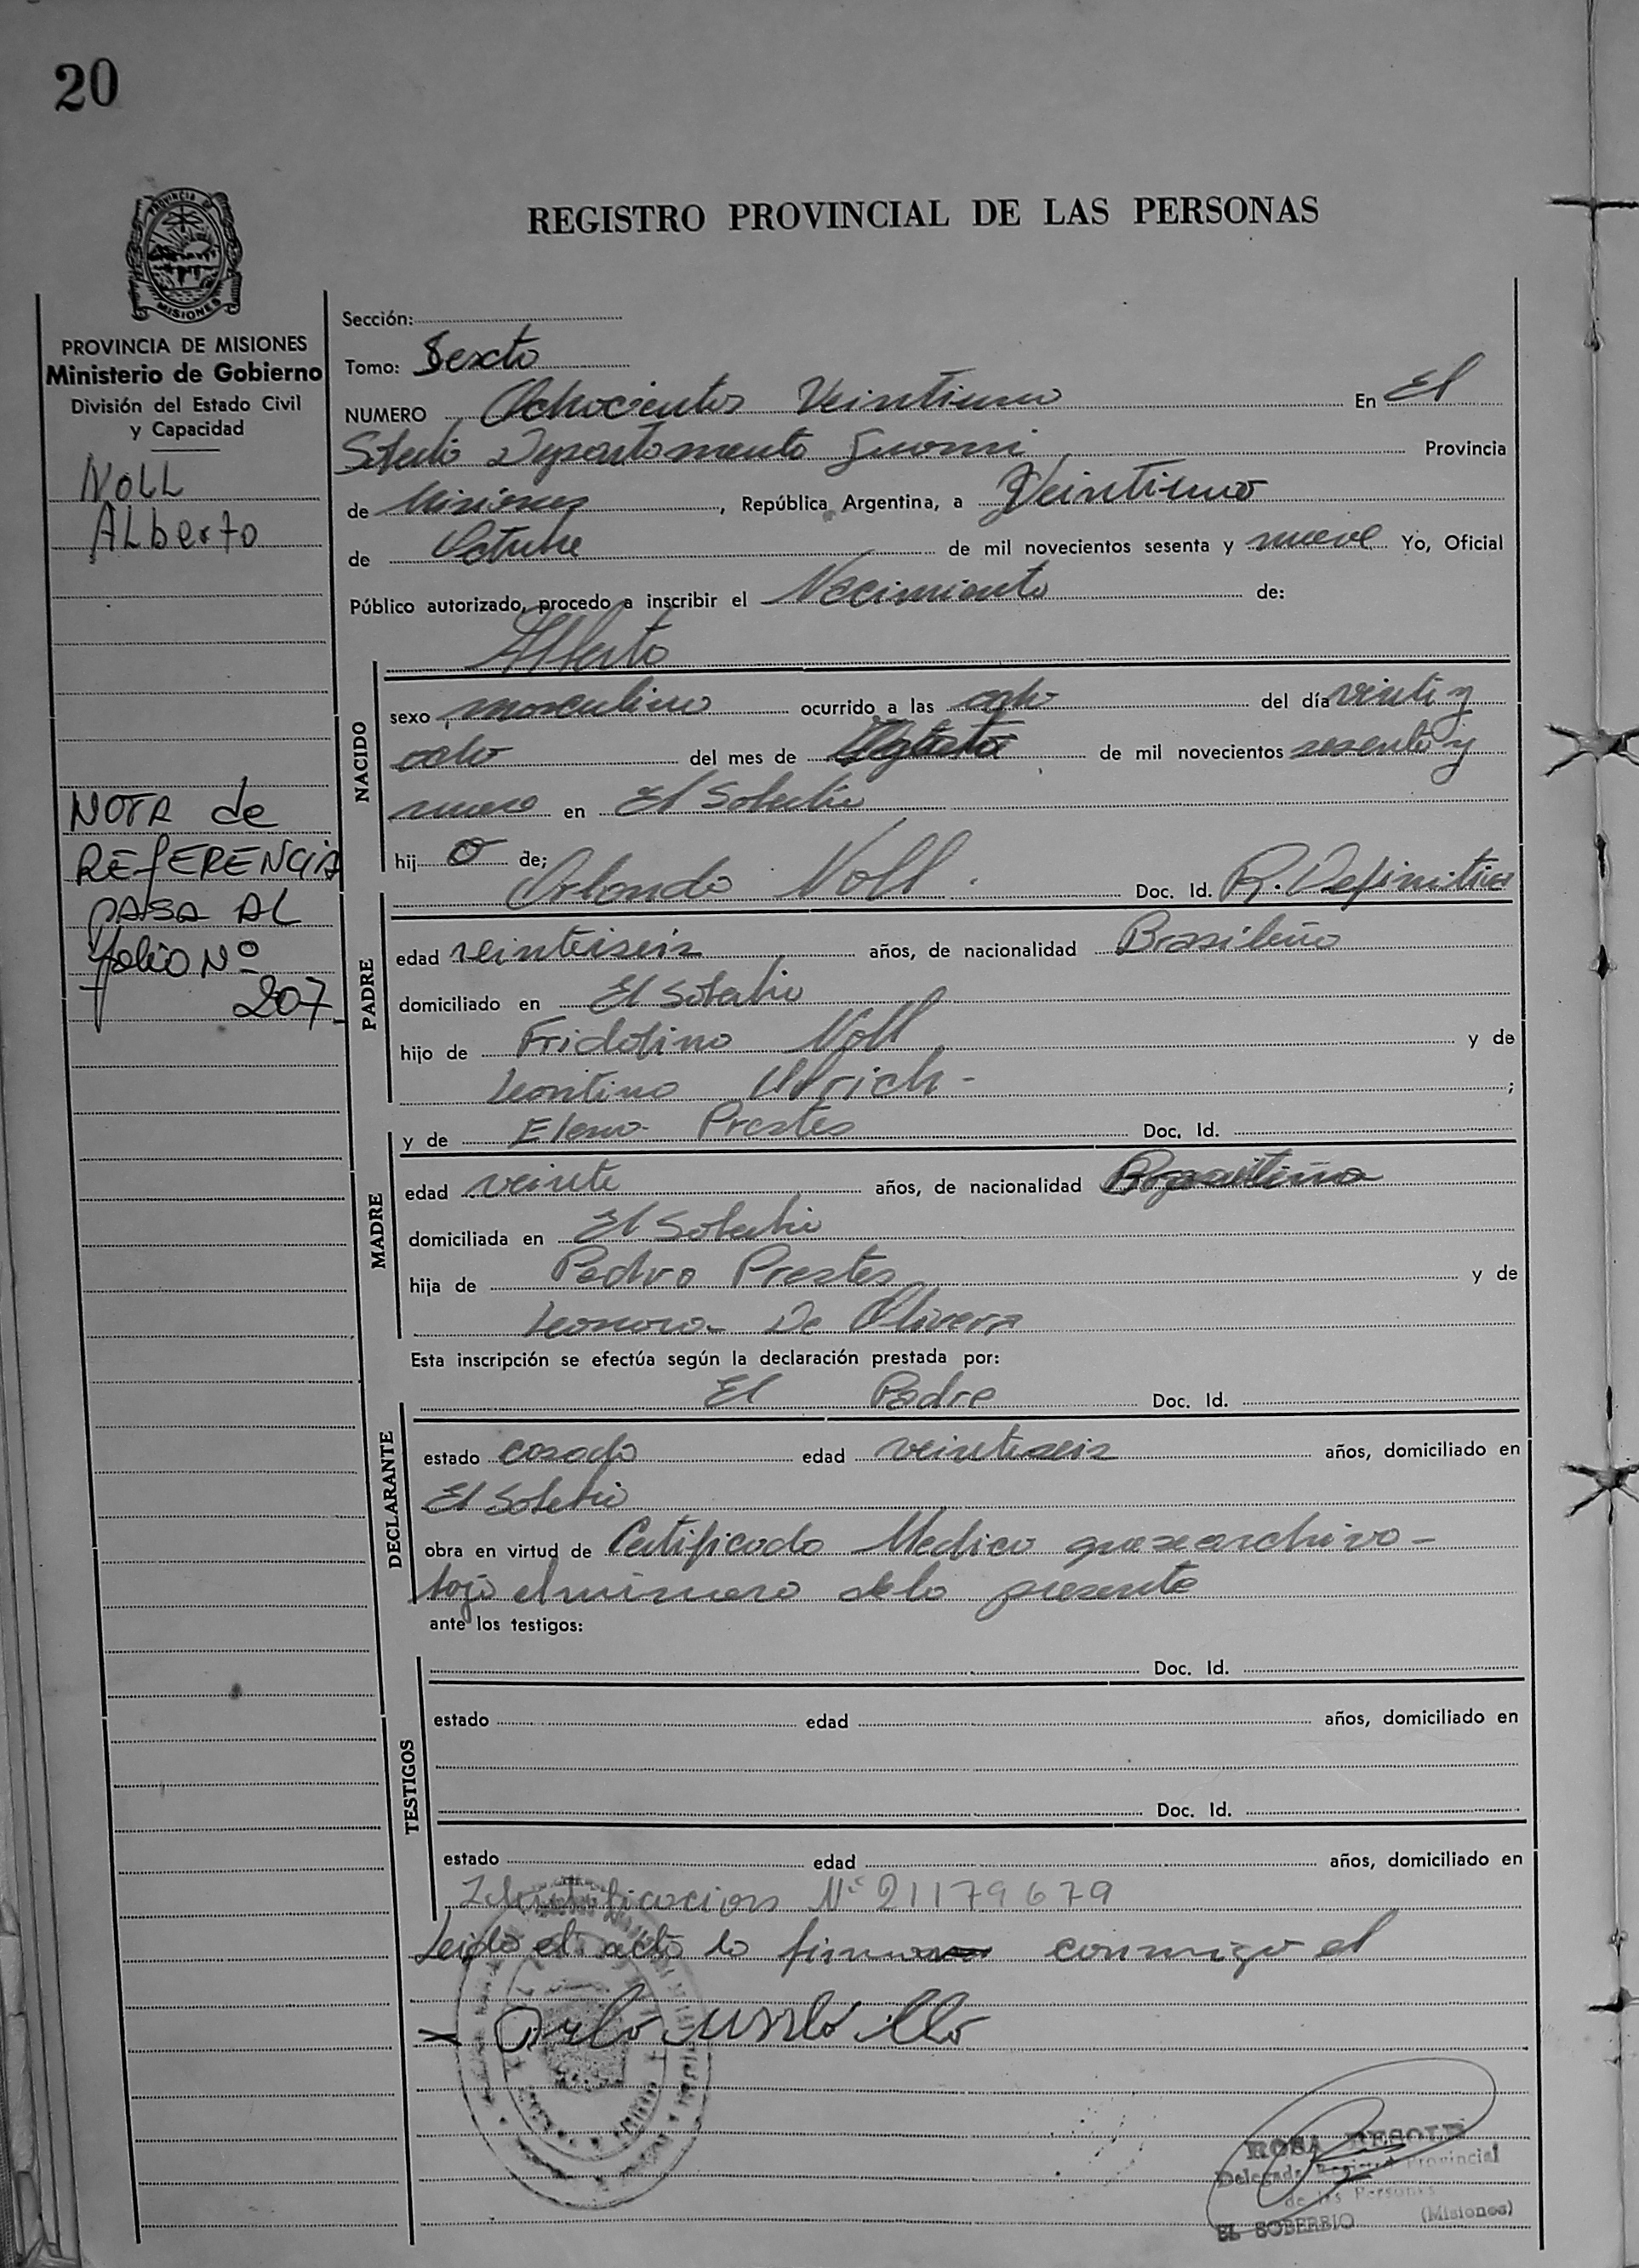 20
REGISTRO PROVINCIAL DE LAS PERSONAS
PROVINCIA DE
MISIONES
PROVINCIA DE MISIONES
Ministerio de Gobierno
División del Estado Civil
y Capacidad
NOLL
ALberto
NOTA de
REfERENCIA
PASA AL
folio Nº
207.-
Sección:
Tomo: Sexto
NUMERO Ochocientos Veintiuno En El
Departamento Guarani Provincia
de Misiones, República Argentina, a Veintiuno
de Octubre de mil novecientos sesenta y nueve Yo, Oficial
Público autorizado, procedo a inscribir el Nacimiento de:
Alberto
NACIDO
sexo masculino ocurrido a las ocho del día veinti y
ocho del mes de Agosto de mil novecientos sesenta y
nueve en El Soberbio
hij o de;
Orlando Noll. Doc. Id. R. Definitiva
PADRE
edad veinteiseis años, de nacionalidad Brasileño
domiciliado en El Soberbio
hijo de Fridolino Noll y de
Leontina Ulrich - ;
y de Elena Prestes Doc. Id.
MADRE
edad veinte años, de nacionalidad
domiciliada en El Soberbio
hija de Pedro Prestes y de
Leonora De Olivera
Esta inscripción se efectúa según la declaración prestada por:
El Padre Doc. Id.
DECLARANTE
estado casado edad veinteseis años, domiciliado en
El Soberbio
obra en virtud de Certificado Medico que se archiva -
bajo el numero de la presente
ante los testigos:
TESTIGOS
Doc. Id.
estado edad años, domiciliado en
Doc. Id.
estado edad años, domiciliado en
Identificacion Nº 21179679
Leido el acta lo firma conmigo el
ROSA
Delegada Registro Provincial
de las Personas
EL SOBERBIO (Misiones)